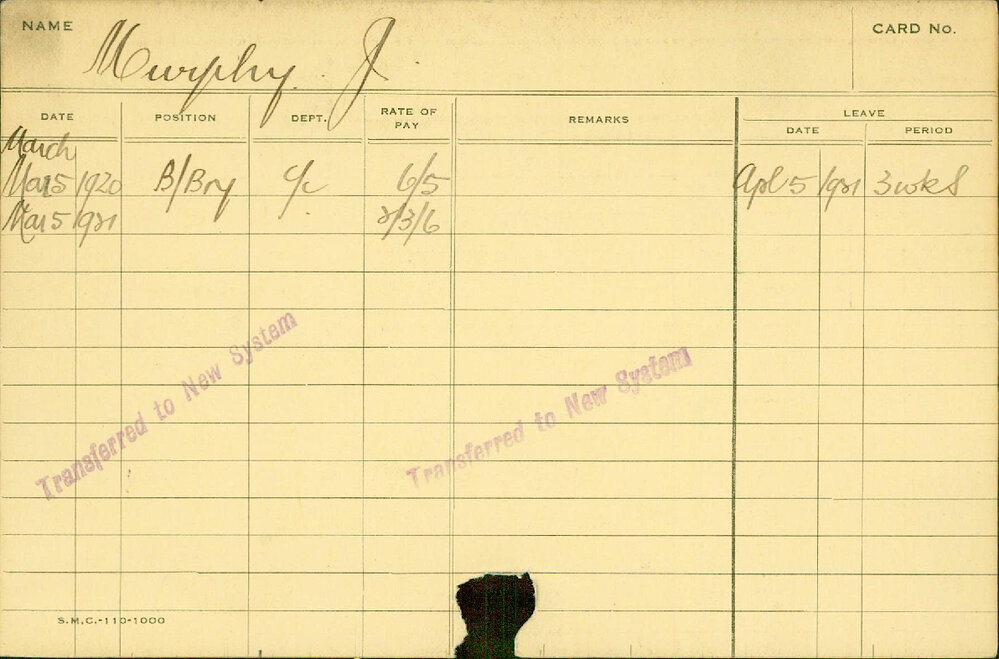 NAME
Murphy. J.
CARD No.
DATE POSITION DEPT. RATE OF PAY REMARKS LEAVE
DATE PERIOD
March
Mar 5 1920 B/Bry c/c 6/5 Apl 5 1921 3 wks
Mar 5 1921 2/3/6
Transferred to New System
Transferred to New System
S.M.C.-110-1000